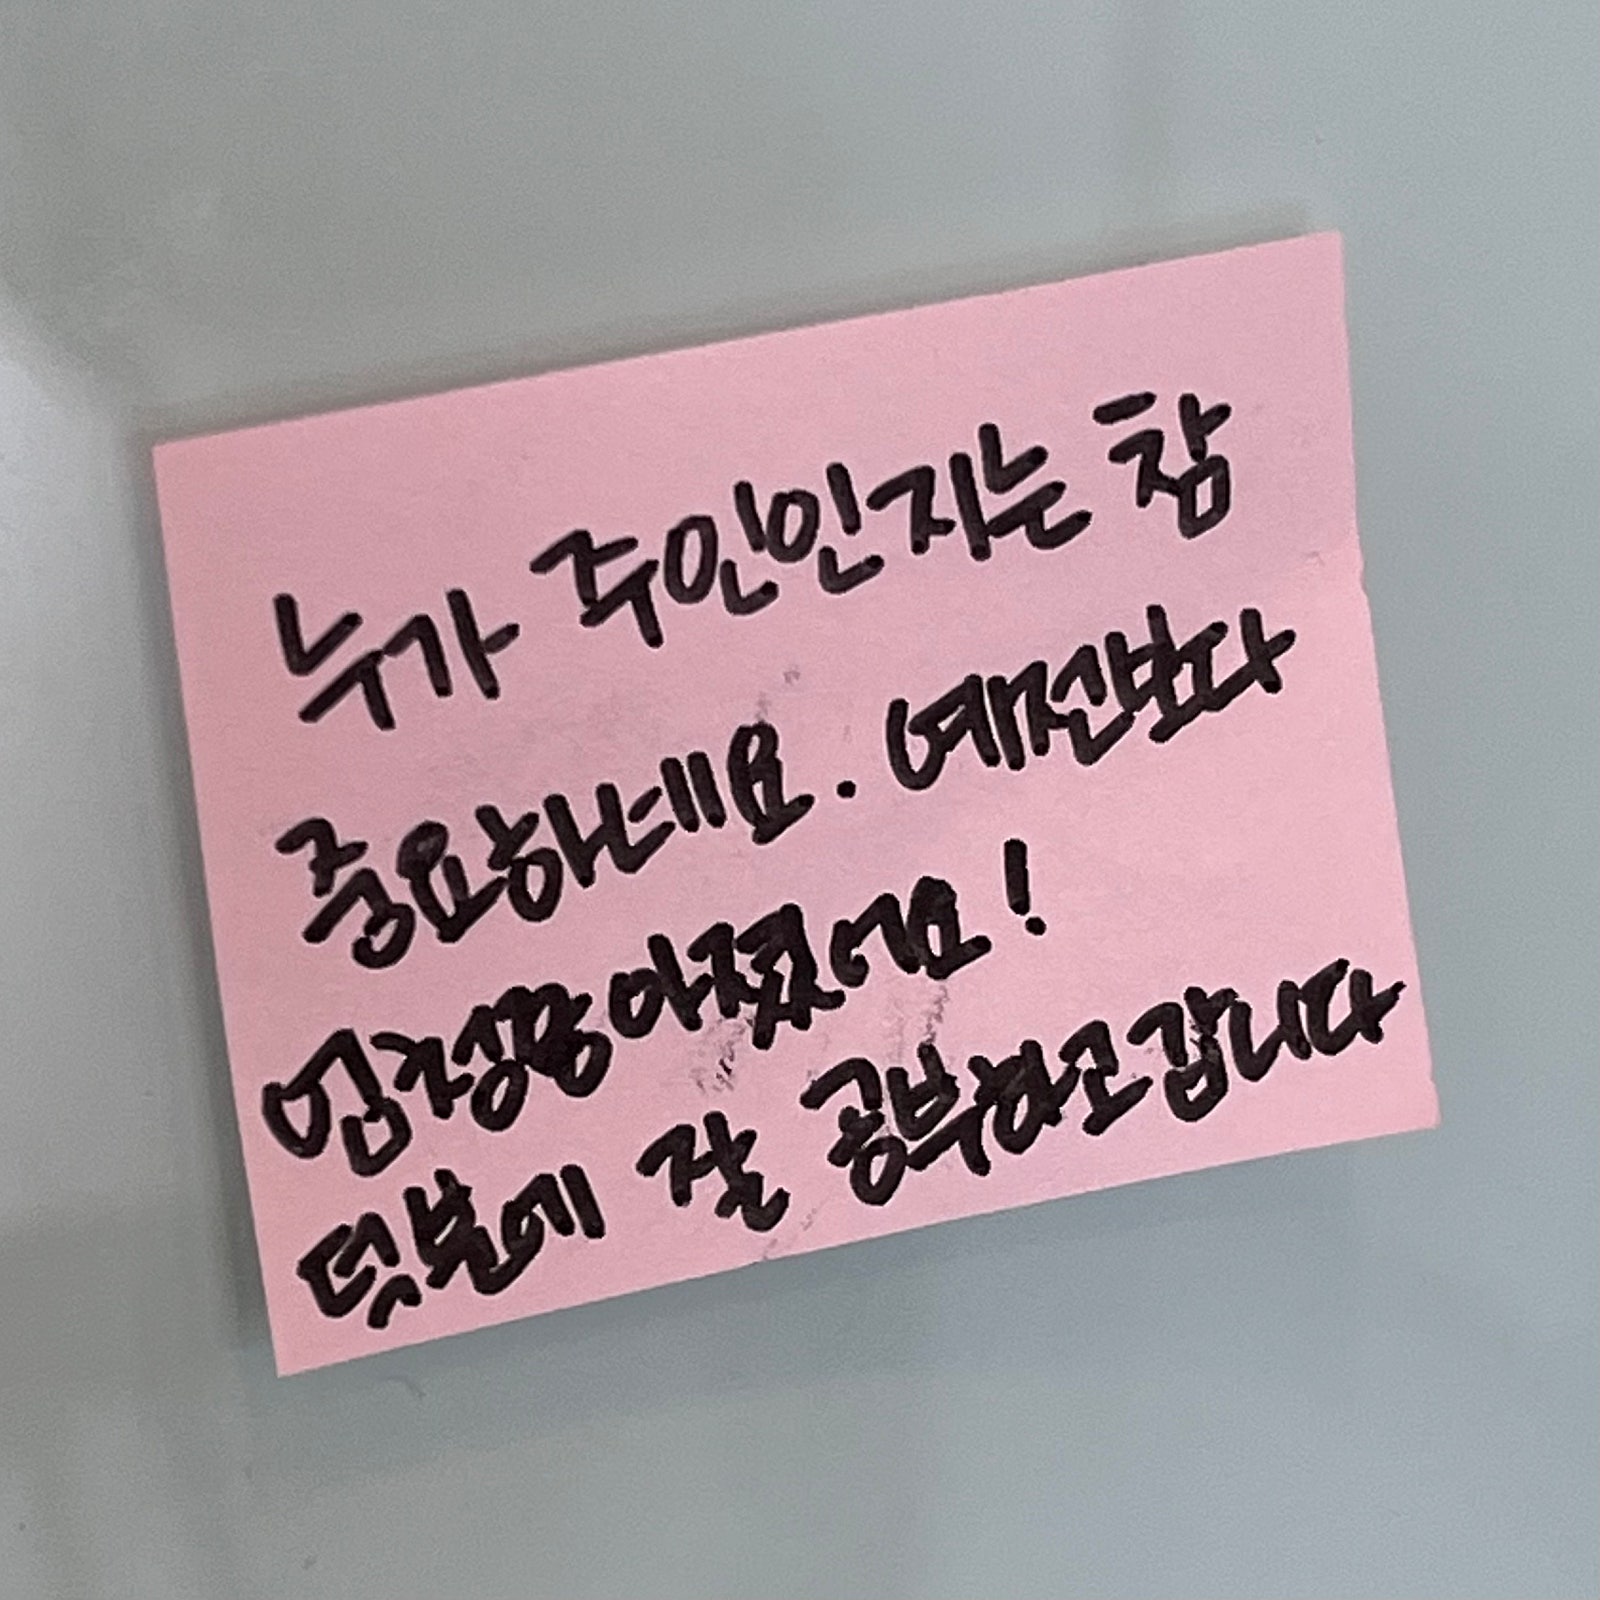 누가 주인인지는 참
중요하네요. 예전보다
엄청좋아졌어요!
덕분에 잘 공부하고갑니다